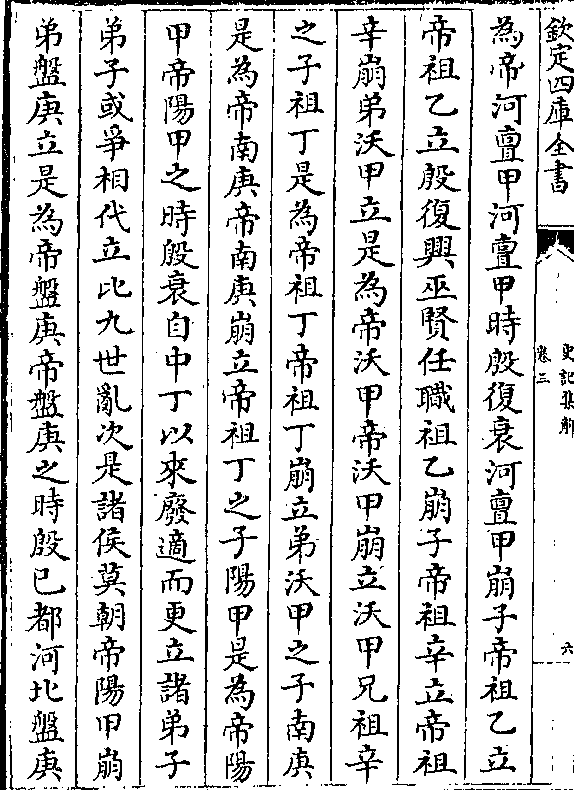 欽定四庫全書
史記集解
卷三
六
為帝河亶甲河亶甲時殷復衰河亶甲崩子帝祖乙立
帝祖乙立殷復興巫賢任職祖乙崩子帝祖辛立帝祖
辛崩弟沃甲立是為帝沃甲帝沃甲崩立沃甲兄祖辛
之子祖丁是為帝祖丁帝祖丁崩立弟沃甲之子南庚
是為帝南庚帝南庚崩立帝祖丁之子陽甲是為帝陽
甲帝陽甲之時殷衰自中丁以來廢適而更立諸弟子
弟子或爭相代立比九世亂次是諸侯莫朝帝陽甲崩
弟盤庚立是為帝盤庚帝盤庚之時殷已都河北盤庚